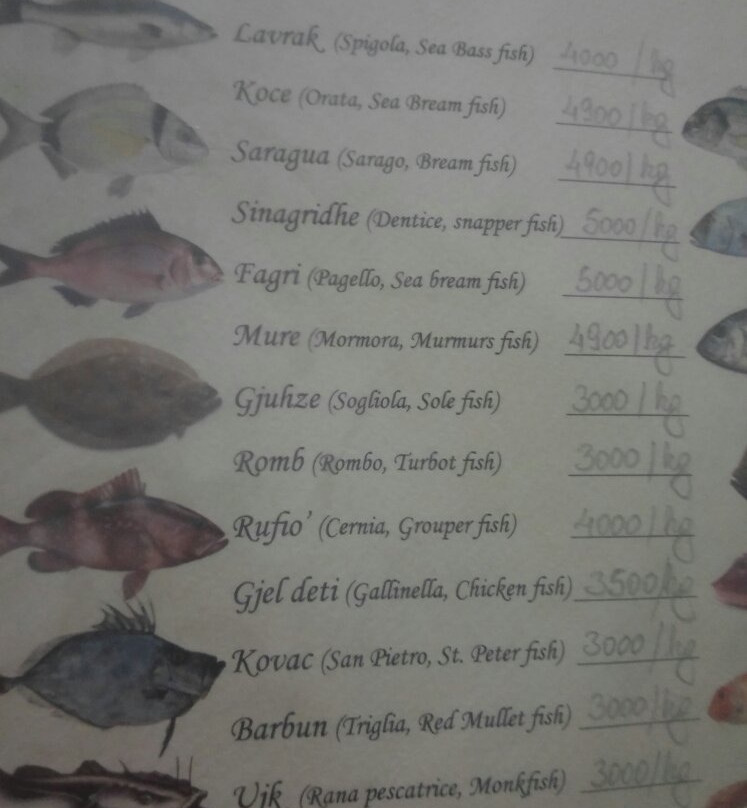 Lavrak (Spigola, Sea Bass fish) 4000/kg
Koce (Orata, Sea Bream fish) 4900/kg
Saragua (Sarago, Bream fish) 4900/kg
Sinagridhe (Dentice, snapper fish) 5000/kg
Fagri (Pagello, Sea bream fish) 5000/kg
Mure (Mormora, Murmurs fish) 4900/kg
Gjuhze (Sogliola, Sole fish) 3000/kg
Romb (Rombo, Turbot fish) 3000/kg
Rufio' (Cernia, Grouper fish) 4000/kg
Gjel deti (Gallinella, Chicken fish) 3500/kg
Kovac (San Pietro, St. Peter fish) 3000/kg
Barbun (Triglia, Red Mullet fish) 3000/kg
Ujk (Rana pescatrice, Monkfish) 3000/kg